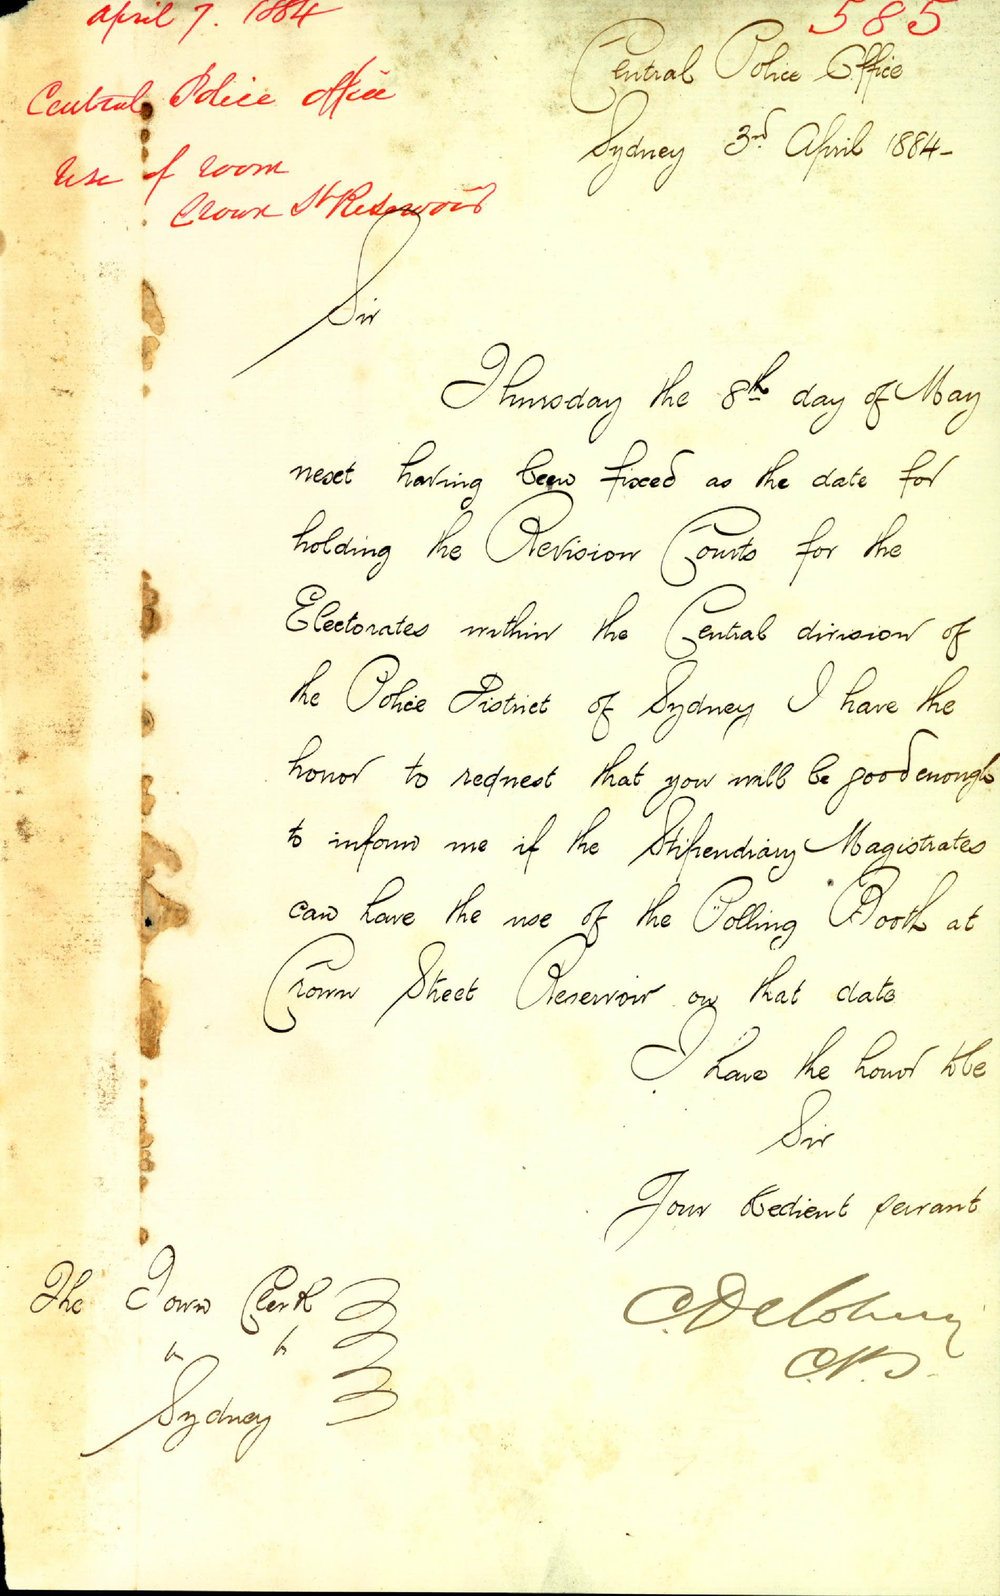 April 7. 1884
585
Central Police Office
Use of room
Crown St Reservoir
Central Police Office
Sydney 3rd April 1884-
Sir
Thursday the 8th day of May
next having been fixed as the date for
holding the Revision Courts for the
Electorates within the Central division of
the Police District of Sydney I have the
honor to request that you will be good enough
to inform me if the Stipendiary Magistrates
can have the use of the Polling Booth at
Crown Street Reservoir on that date
I have the honor to be
Sir
Your obedient servant
C. Delohery
The Town Clerk
" "
Sydney